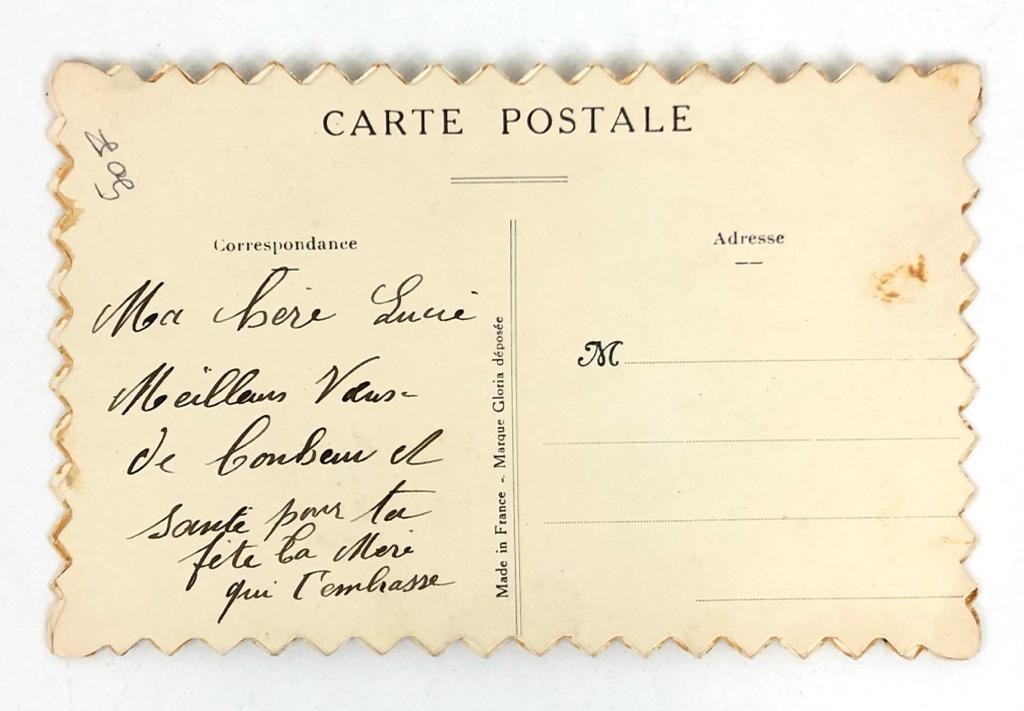 CARTE POSTALE
Correspondance
Ma chère Lucie
Meilleurs Vœux
de bonheur et
santé pour ta
fête ta Mère
qui t'embrasse
Made in France -. Marque Gloria déposée
Adresse
M